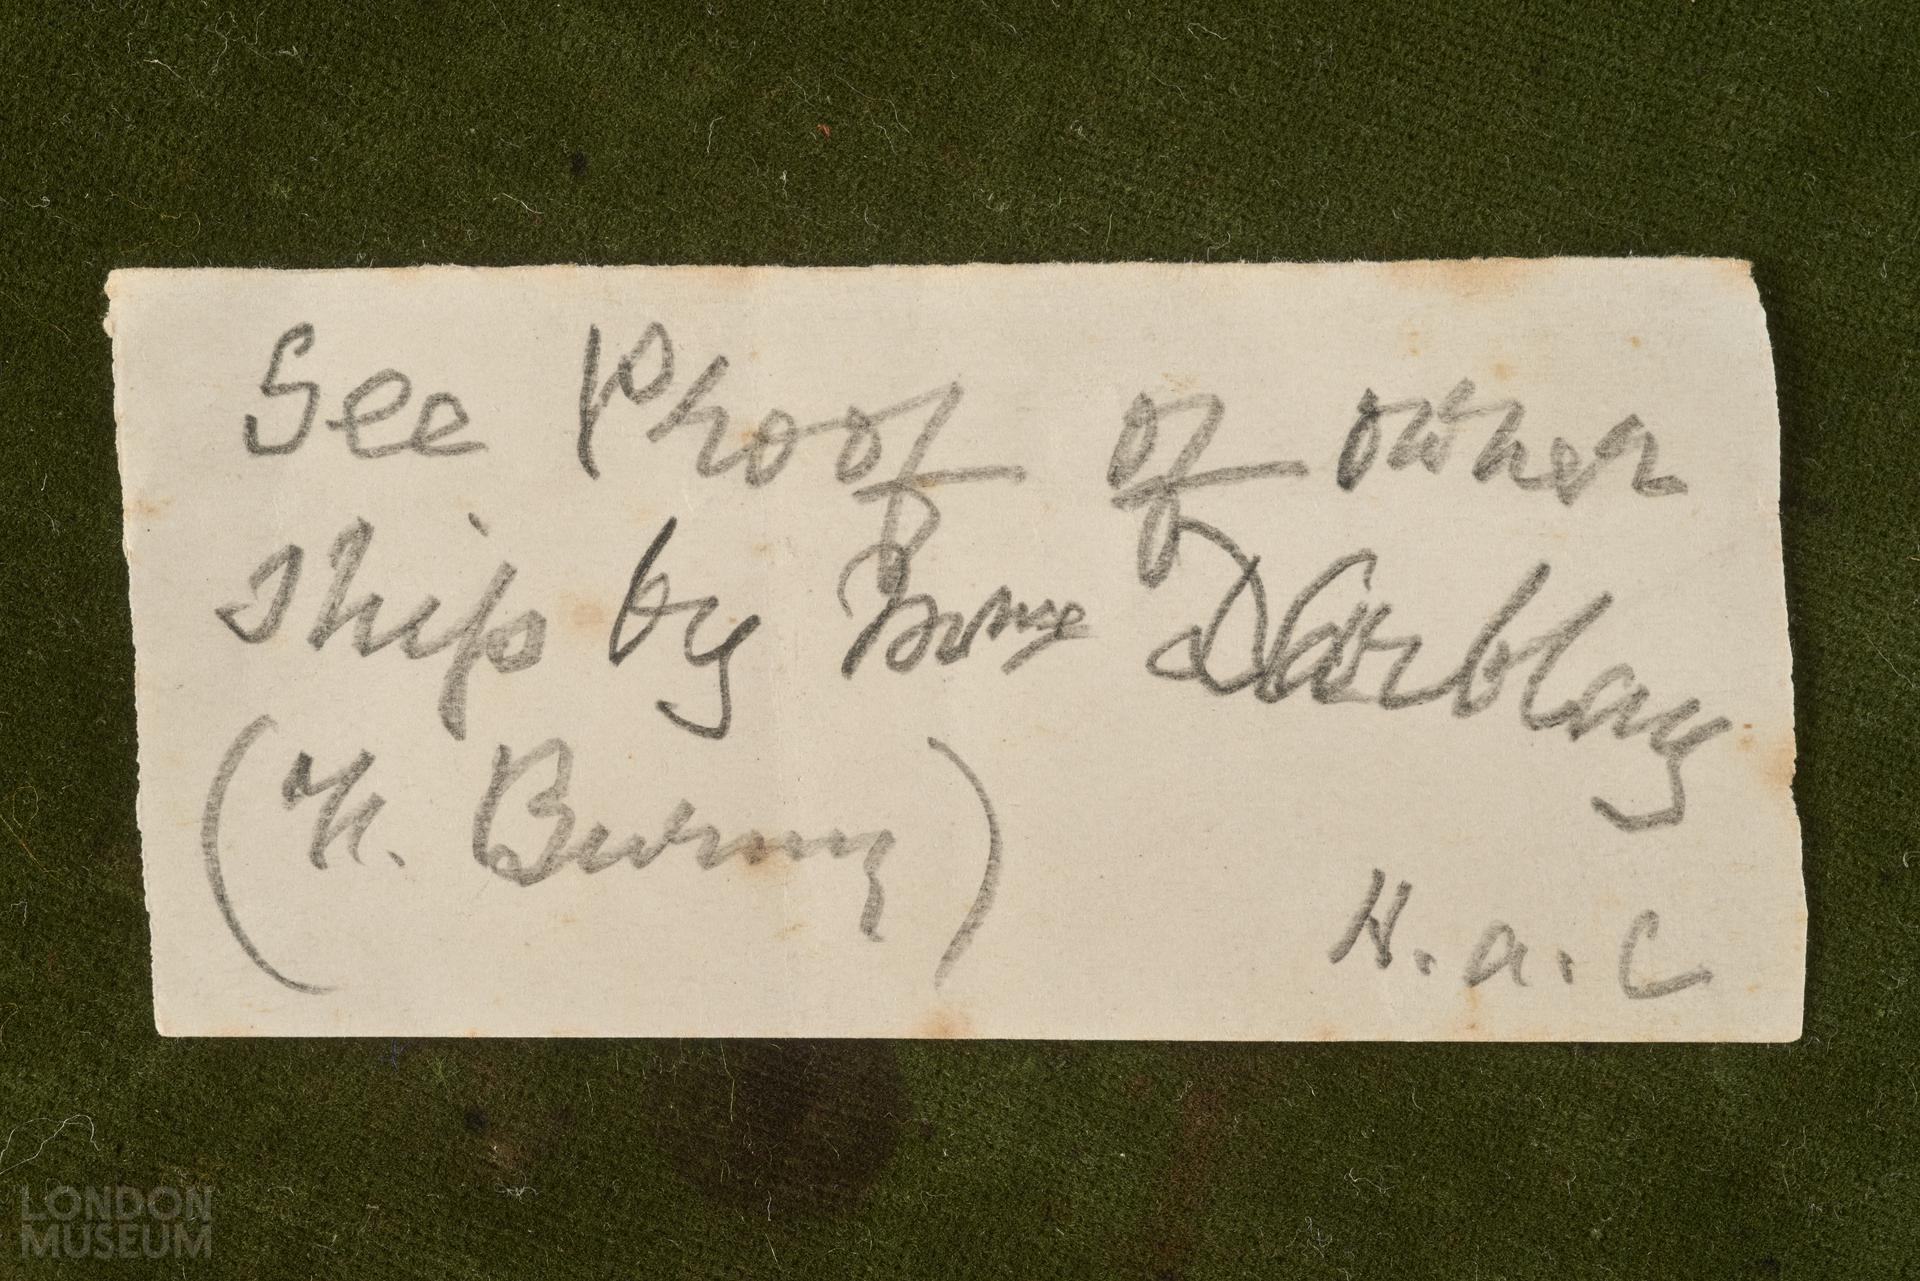 See Proof of owner
ship by Mme D'Arblay
(F. Burney)
H. a. C
LONDON
MUSEUM